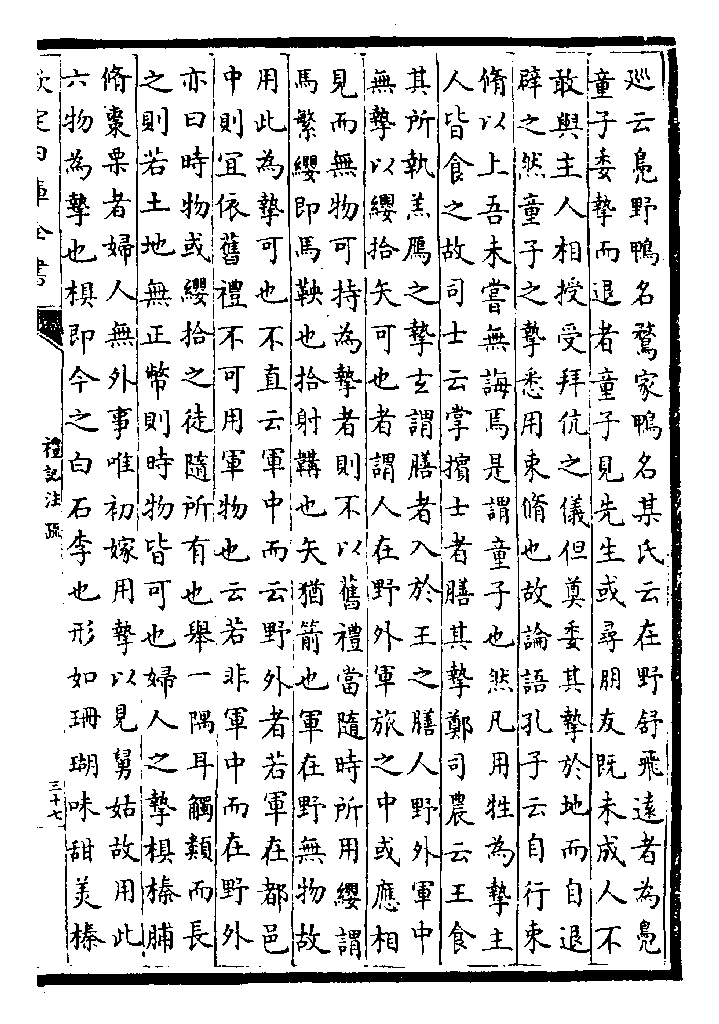 廵云鳧野鴨名鶩家鴨名某氏云在野舒飛逺者為鳧
童子委摯而退者童子見先生或尋朋友既未成人不
敢與主人相授受拜伉之儀但奠委其摯於地而自退
辟之然童子之摯悉用束脩也故論語孔子云自行束
脩以上吾未嘗無誨焉是謂童子也然凡用牲為摯主
人皆食之故司士云掌擯士者膳其摯鄭司農云王食
其所執羔鴈之摯玄謂膳者入於王之膳人野外軍中
無摯以纓拾矢可也者謂人在野外軍旅之中或應相
見而無物可持為摯者則不以舊禮當隨時所用纓謂
馬繁纓即馬鞅也拾射韝也矢猶箭也軍在野無物故
用此為摯可也不直云軍中而云野外者若軍在都邑
中則宜依舊禮不可用軍物也云若非軍中而在野外
亦曰時物或纓拾之徒隨所有也舉一隅耳觸類而長
之則若土地無正幣則時物皆可也婦人之摯椇榛脯
脩棗栗者婦人無外事唯初嫁用摯以見舅姑故用此
六物為摯也椇即今之白石李也形如珊瑚味甜美榛
欽定四庫全書
禮記注疏
三十七